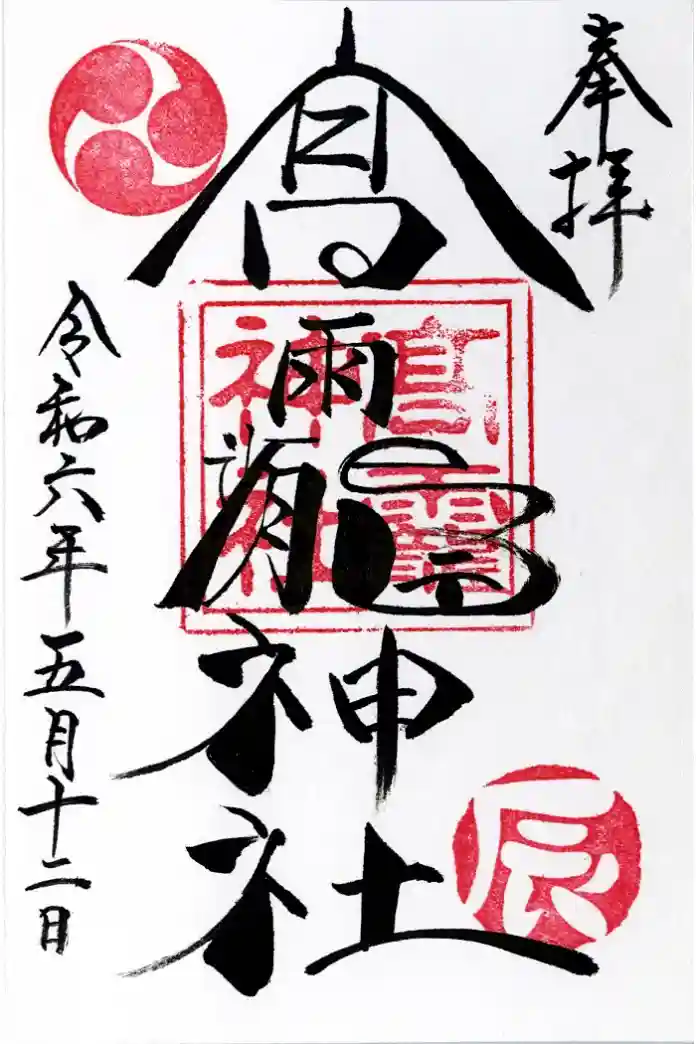 奉拝
高靇神社
令和六年五月十二日
高靇
神社
辰